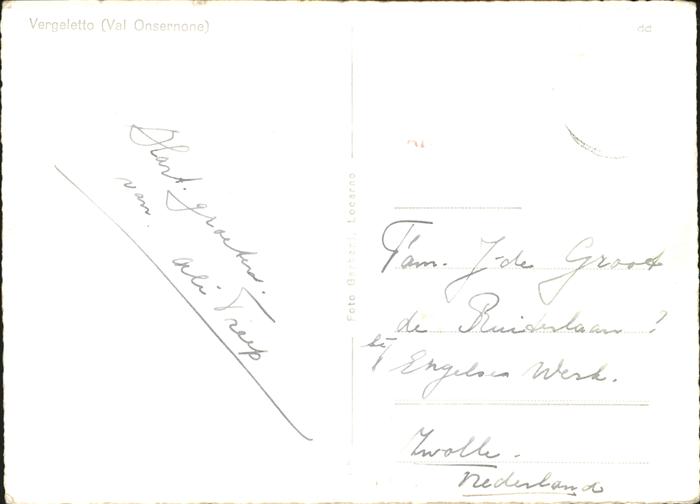 Vergeletto (Val Onsernone)
Hart. groeten.
van.
Ali Treep
Foto Garbani, Locarno
Fam. J. de Groot
de Ruiterlaan?
bij Engelse Werk.
Zwolle.
Nederland